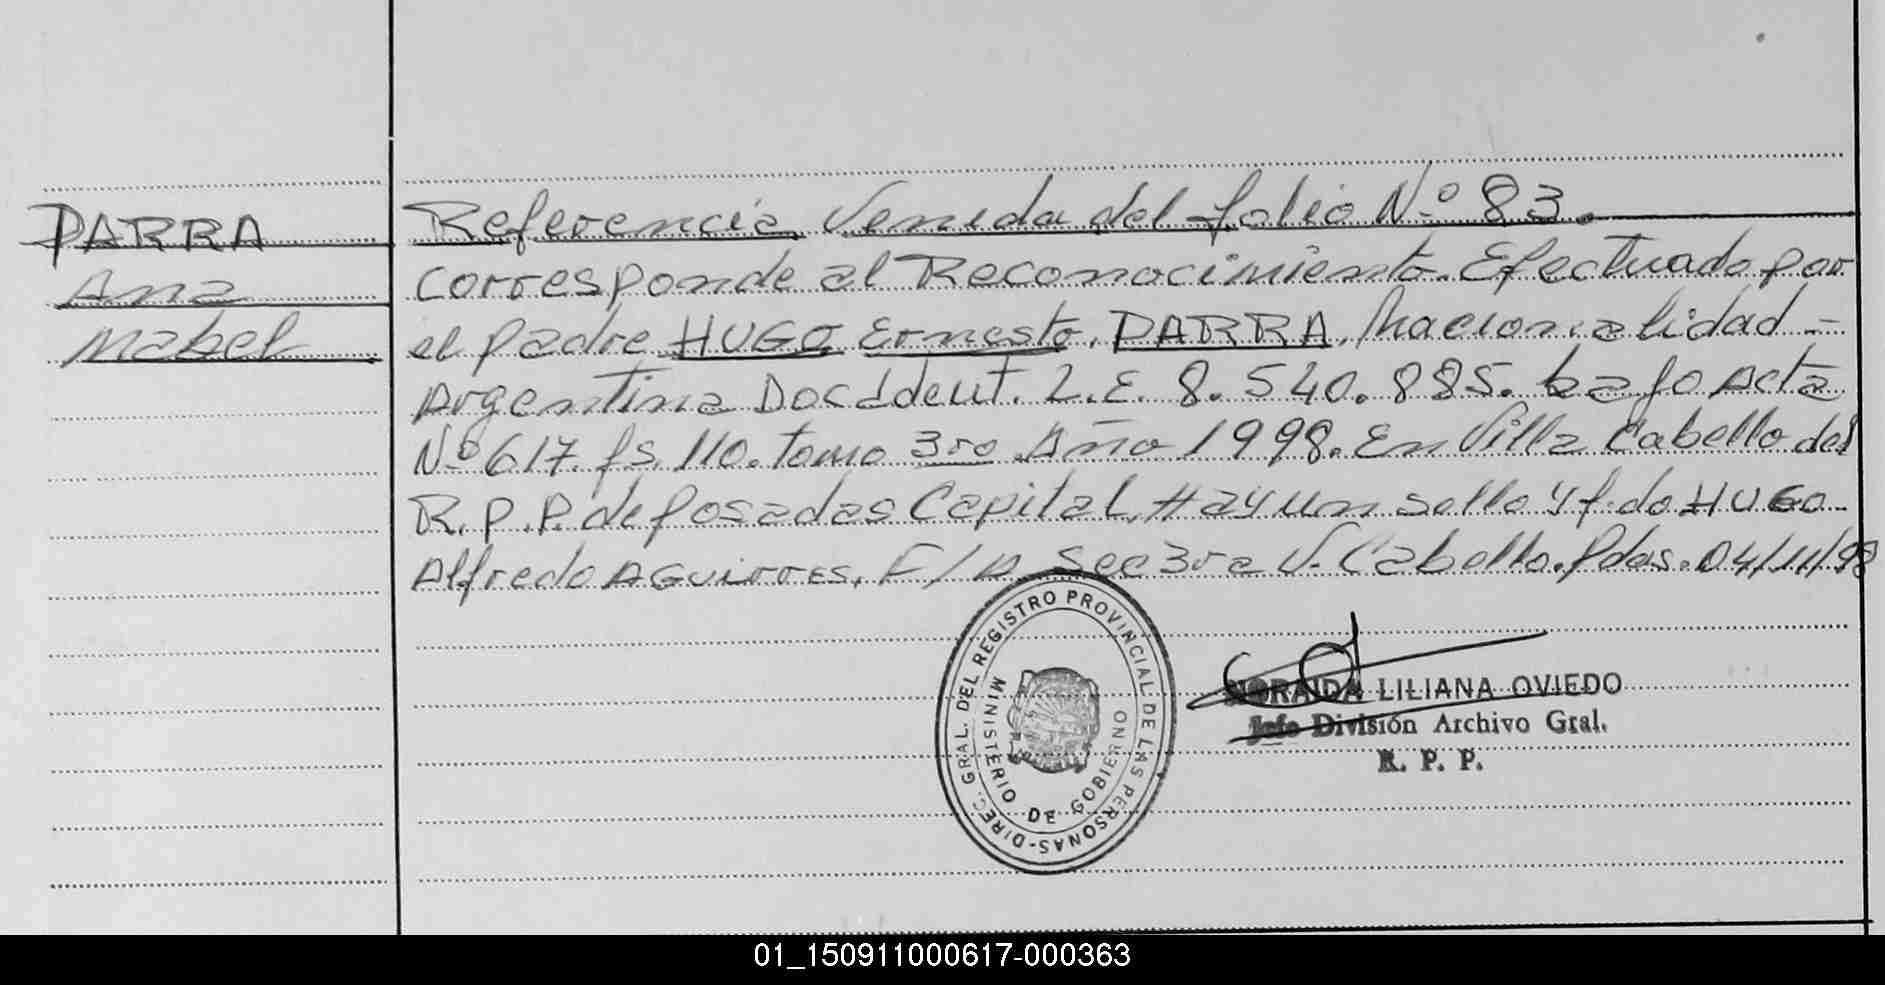 PARRA
Ana
Mabel
Referencia Venida del folio Nº 83.
corresponde al Reconocimiento Efectuado por
el padre HUGO Ernesto PARRA, Nacionalidad -
Argentina Doc Ident. L.E. 8.540.885. bajo Acta
Nº 617. fs. 110. tomo 3ro Año 1998. En Villa Cabello del
R.P.P. de Posadas Capital, Hay un sello y f.do HUGO
Alfredo AGuirres, F/A Sec 3ra V. Cabello. Pdas. 04/11/98
DIREC. GRAL. DEL REGISTRO PROVINCIAL DE LAS PERSONAS-
MINISTERIO DE GOBIERNO
NORAIDA LILIANA OVIEDO
Jefe División Archivo Gral.
R. P. P.
01_150911000617-000363